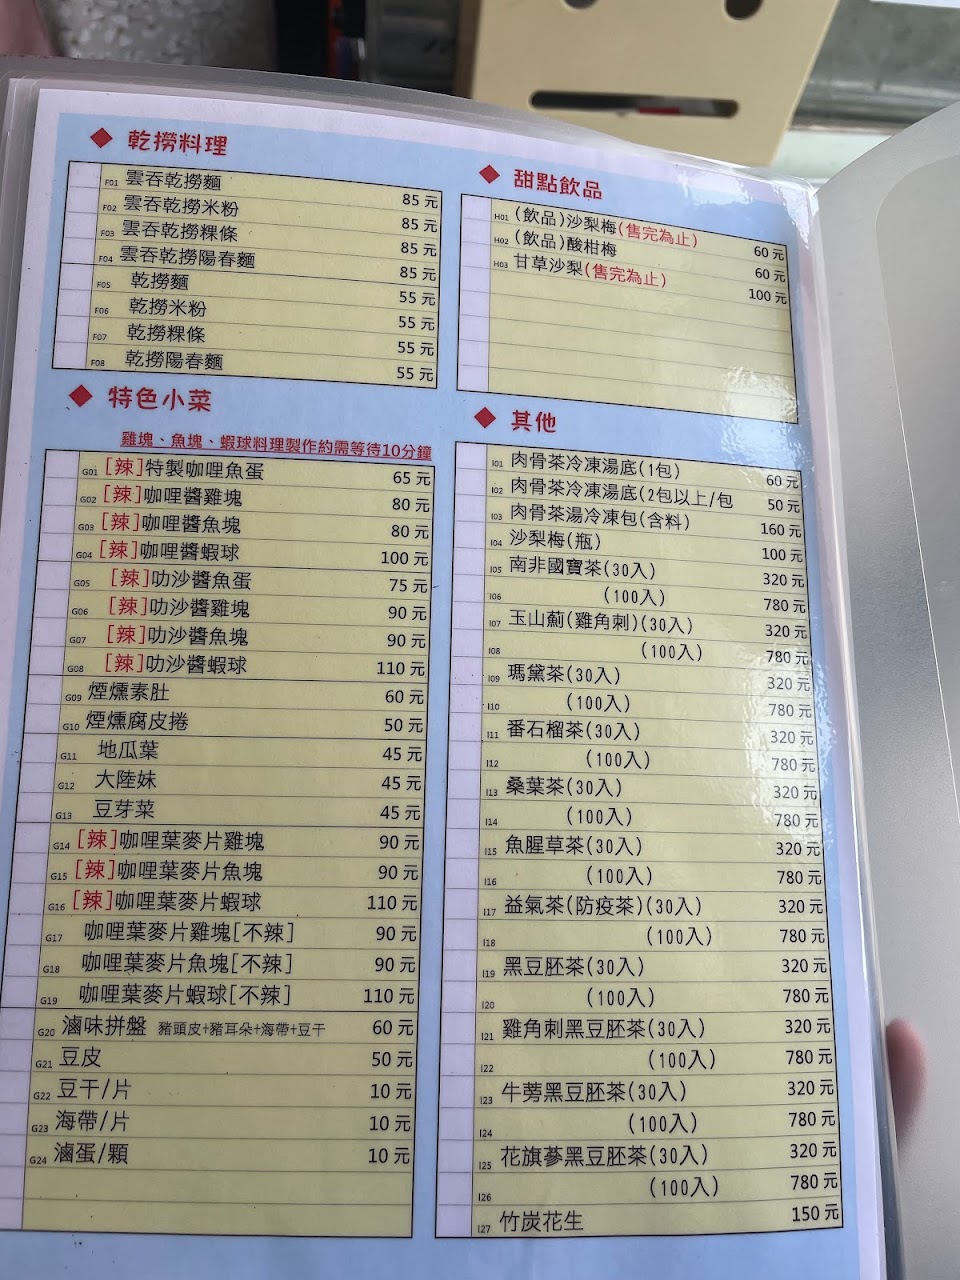 乾撈料理
F01 雲吞乾撈麵 85 元
F02 雲吞乾撈米粉 85 元
F03 雲吞乾撈粿條 85 元
F04 雲吞乾撈陽春麵 85 元
F05 乾撈麵 55 元
F06 乾撈米粉 55 元
F07 乾撈粿條 55 元
F08 乾撈陽春麵 55 元
特色小菜
雞塊、魚塊、蝦球料理製作約需等待10分鐘
G01 [辣]特製咖哩魚蛋 65 元
G02 [辣]咖哩醬雞塊 80 元
G03 [辣]咖哩醬魚塊 80 元
G04 [辣]咖哩醬蝦球 100 元
G05 [辣]叻沙醬魚蛋 75 元
G06 [辣]叻沙醬雞塊 90 元
G07 [辣]叻沙醬魚塊 90 元
G08 [辣]叻沙醬蝦球 110 元
G09 煙燻素肚 60 元
G10 煙燻腐皮捲 50 元
G11 地瓜葉 45 元
G12 大陸妹 45 元
G13 豆芽菜 45 元
G14 [辣]咖哩葉麥片雞塊 90 元
G15 [辣]咖哩葉麥片魚塊 90 元
G16 [辣]咖哩葉麥片蝦球 110 元
G17 咖哩葉麥片雞塊[不辣] 90 元
G18 咖哩葉麥片魚塊[不辣] 90 元
G19 咖哩葉麥片蝦球[不辣] 110 元
G20 滷味拼盤 豬頭皮+豬耳朵+海帶+豆干 60 元
G21 豆皮 50 元
G22 豆干/片 10 元
G23 海帶/片 10 元
G24 滷蛋/顆 10 元
甜點飲品
H01 (飲品)沙梨梅(售完為止) 60 元
H02 (飲品)酸柑梅 60 元
H03 甘草沙梨(售完為止) 100 元
其他
I01 肉骨茶冷凍湯底(1包) 60 元
I02 肉骨茶冷凍湯底(2包以上/包 50 元
I03 肉骨茶湯冷凍包(含料) 160 元
I04 沙梨梅(瓶) 100 元
I05 南非國寶茶(30入) 320 元
I06 (100入) 780 元
I07 玉山薊(雞角刺)(30入) 320 元
I08 (100入) 780 元
I09 瑪黛茶(30入) 320 元
I10 (100入) 780 元
I11 番石榴茶(30入) 320 元
I12 (100入) 780 元
I13 桑葉茶(30入) 320 元
I14 (100入) 780 元
I15 魚腥草茶(30入) 320 元
I16 (100入) 780 元
I17 益氣茶(防疫茶)(30入) 320 元
I18 (100入) 780 元
I19 黑豆胚茶(30入) 320 元
I20 (100入) 780 元
I21 雞角刺黑豆胚茶(30入) 320 元
I22 (100入) 780 元
I23 牛蒡黑豆胚茶(30入) 320 元
I24 (100入) 780 元
I25 花旗蔘黑豆胚茶(30入) 320 元
I26 (100入) 780 元
I27 竹炭花生 150 元